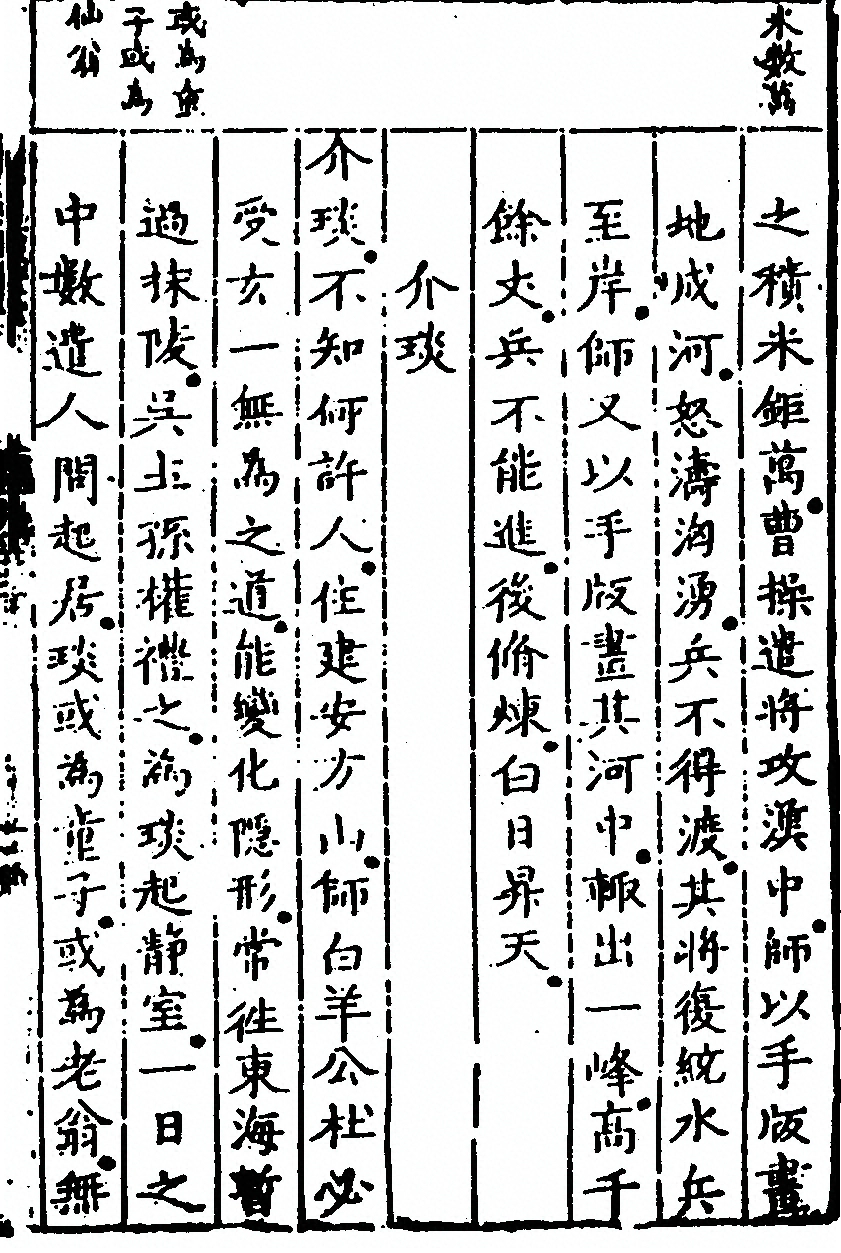 米數論
之積米鉅萬曹操遣將攻漢中師以手版畫
地成河怒濤洶湧兵不得渡其將復統水兵
至岸師又以手版畫其河中輙出一峰高千
餘丈兵不能進後脩煉白日昇天
介琰
介琰不知何許人住建安方山師白羊公杜必
受玄一無為之道能變化隱形常徃東海暫
過抹陵吳主孫權禮之為琰起靜室一日之
中數遣人問起居琰或為童子或為老翁無
或為童
子或為
仙翁